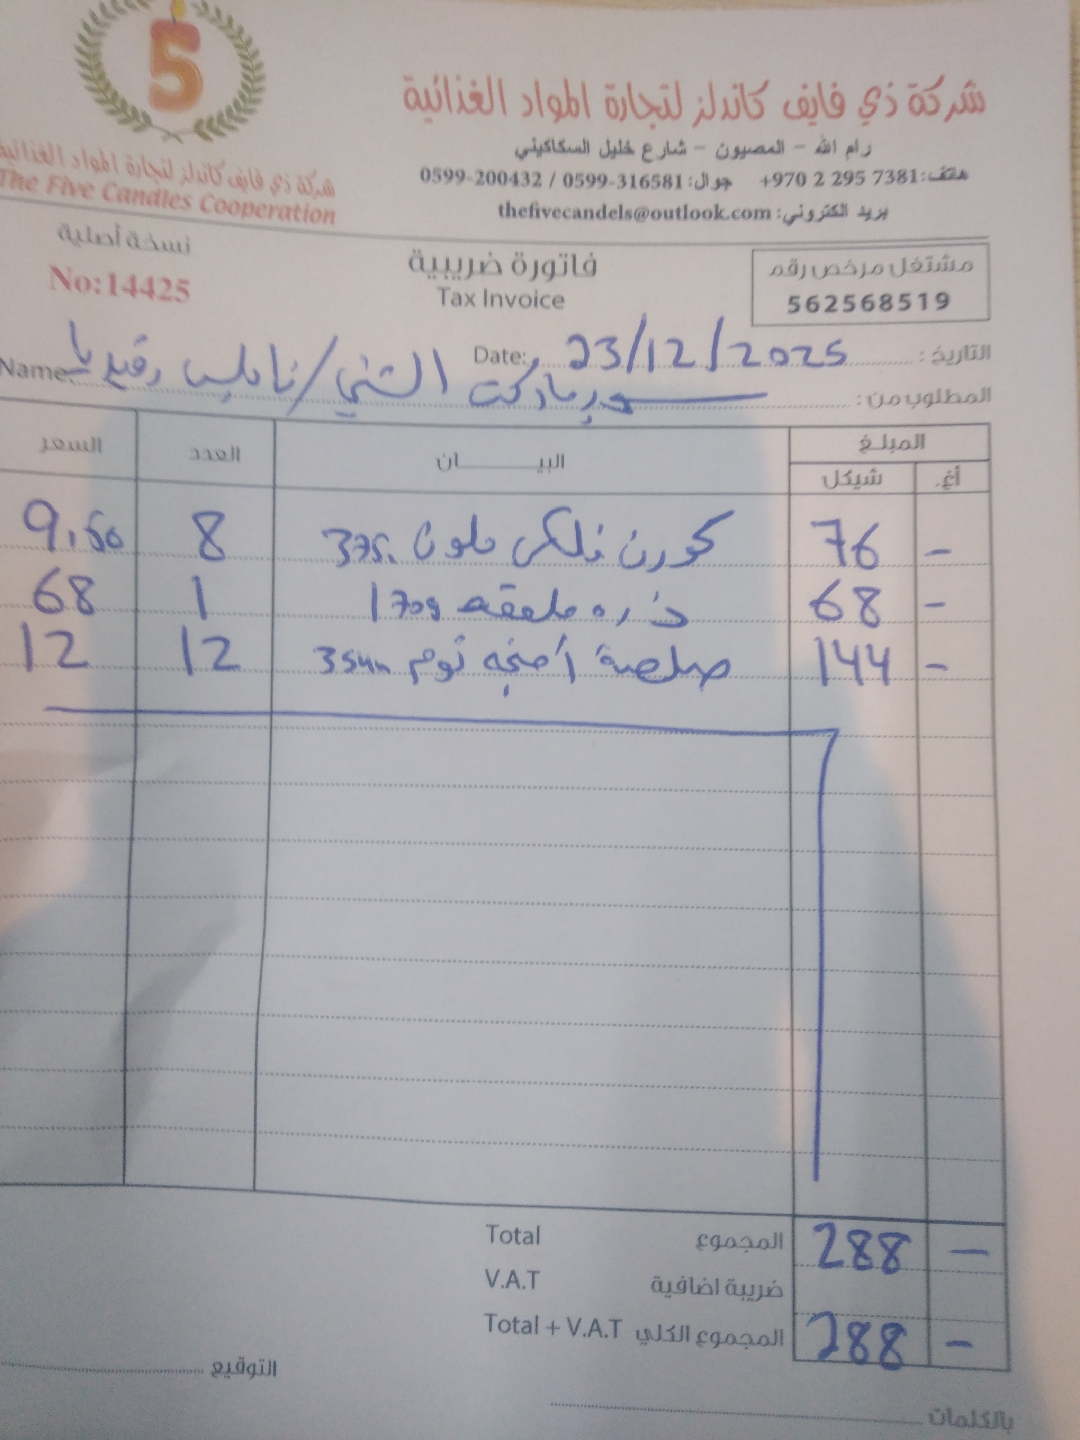 5
شركة ذي فايف كاندلز لتجارة المواد الغذائية
The Five Candles Cooperation
شركة ذي فايف كاندلز لتجارة المواد الغذائية
رام الله - المصيون - شارع خليل السكاكيني
هاتف: +970 2 295 7381 جوال: 0599-316581 / 0599-200432
بريد الكتروني: thefivecandels@outlook.com
نسخة أصلية
No:14425
فاتورة ضريبية
Tax Invoice
مشتغل مرخص رقم
562568519
التاريخ: 23/12/2025 Date:
المطلوب من: سوبرماركت الشني/نابلس رفيديا Name:
المبلغ البيـــــان العدد السعر
أغ. شيكل
- 76 كورن فلكس ملون 375 8 9,50
- 68 ذره ملعقه 170g 1 68
- 144 صلصة أجنحه ثوم 354m 12 12
Total المجموع 288 -
V.A.T ضريبة اضافية
Total + V.A.T المجموع الكلي 288 -
التوقيع
بالكلمات